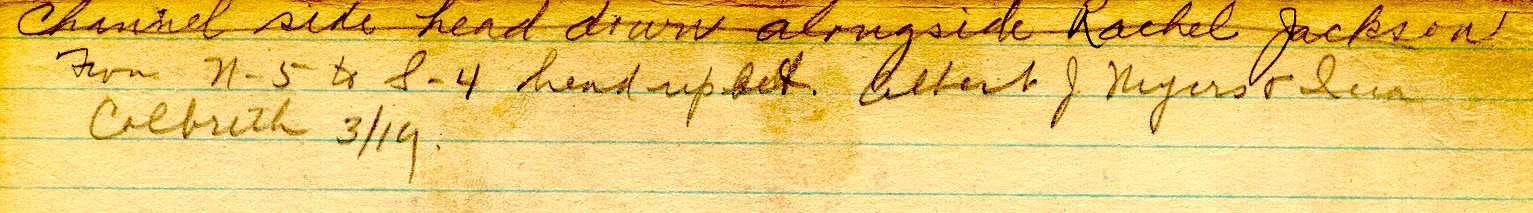 Channel side head down alongside Rachel Jackson
From N-5 to S-4 head up bet. Albert J Myers &
Colbreth 3/19.